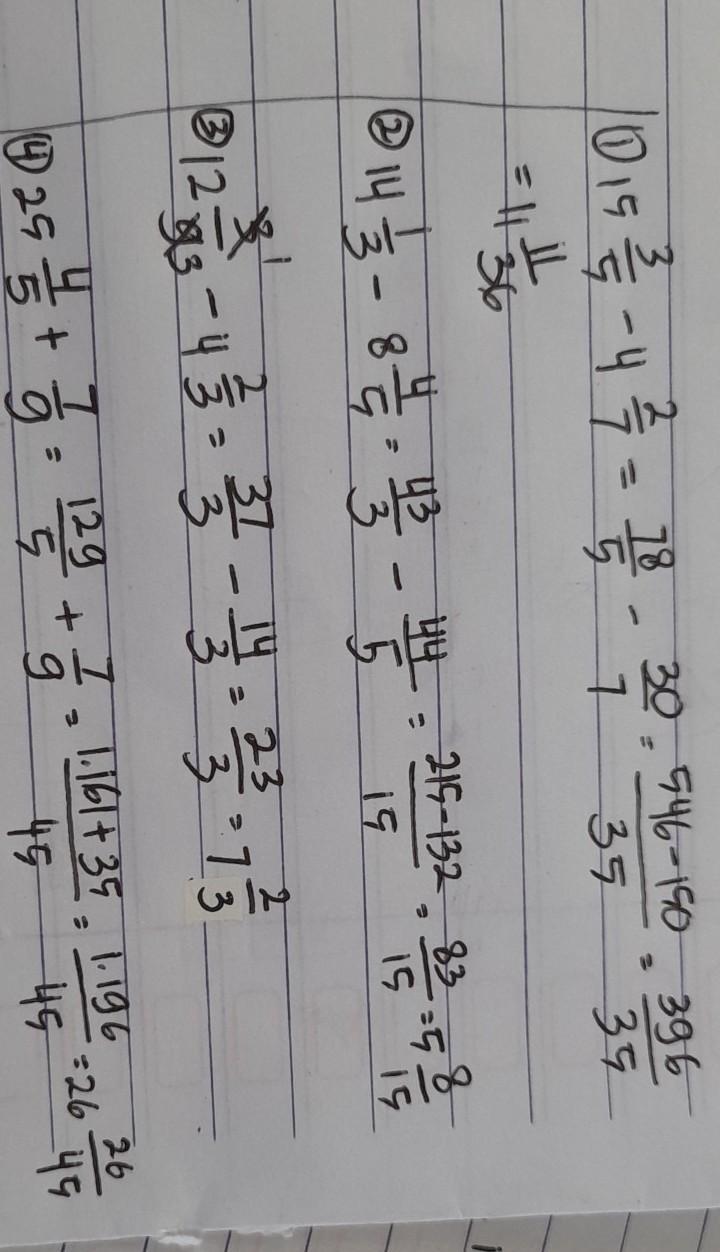 ① 15 3/5 - 4 2/7 = 78/5 - 30/7 = 546-150/35 = 396/35
= 11 11/36
② 14 1/3 - 8 4/5 = 43/3 - 44/5 = 215-132/15 = 83/15 = 5 8/15
③ 12 1/3 - 4 2/3 = 37/3 - 14/3 = 23/3 = 7 2/3
④ 25 4/5 + 7/9 = 129/5 + 7/9 = 1.161+35/45 = 1.196/45 = 26 26/45